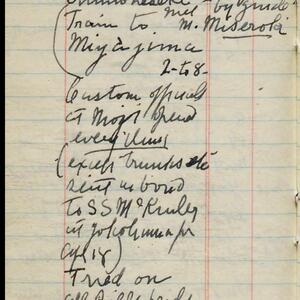 met by Guide
(Train to M. Miseroki
Miyajima
2-to 8-
Custom officials
at Moji opened
everything
(except trunks etc
sent in bond
to SS McKinley
at Yokohama for
Apr 18)
Tried on